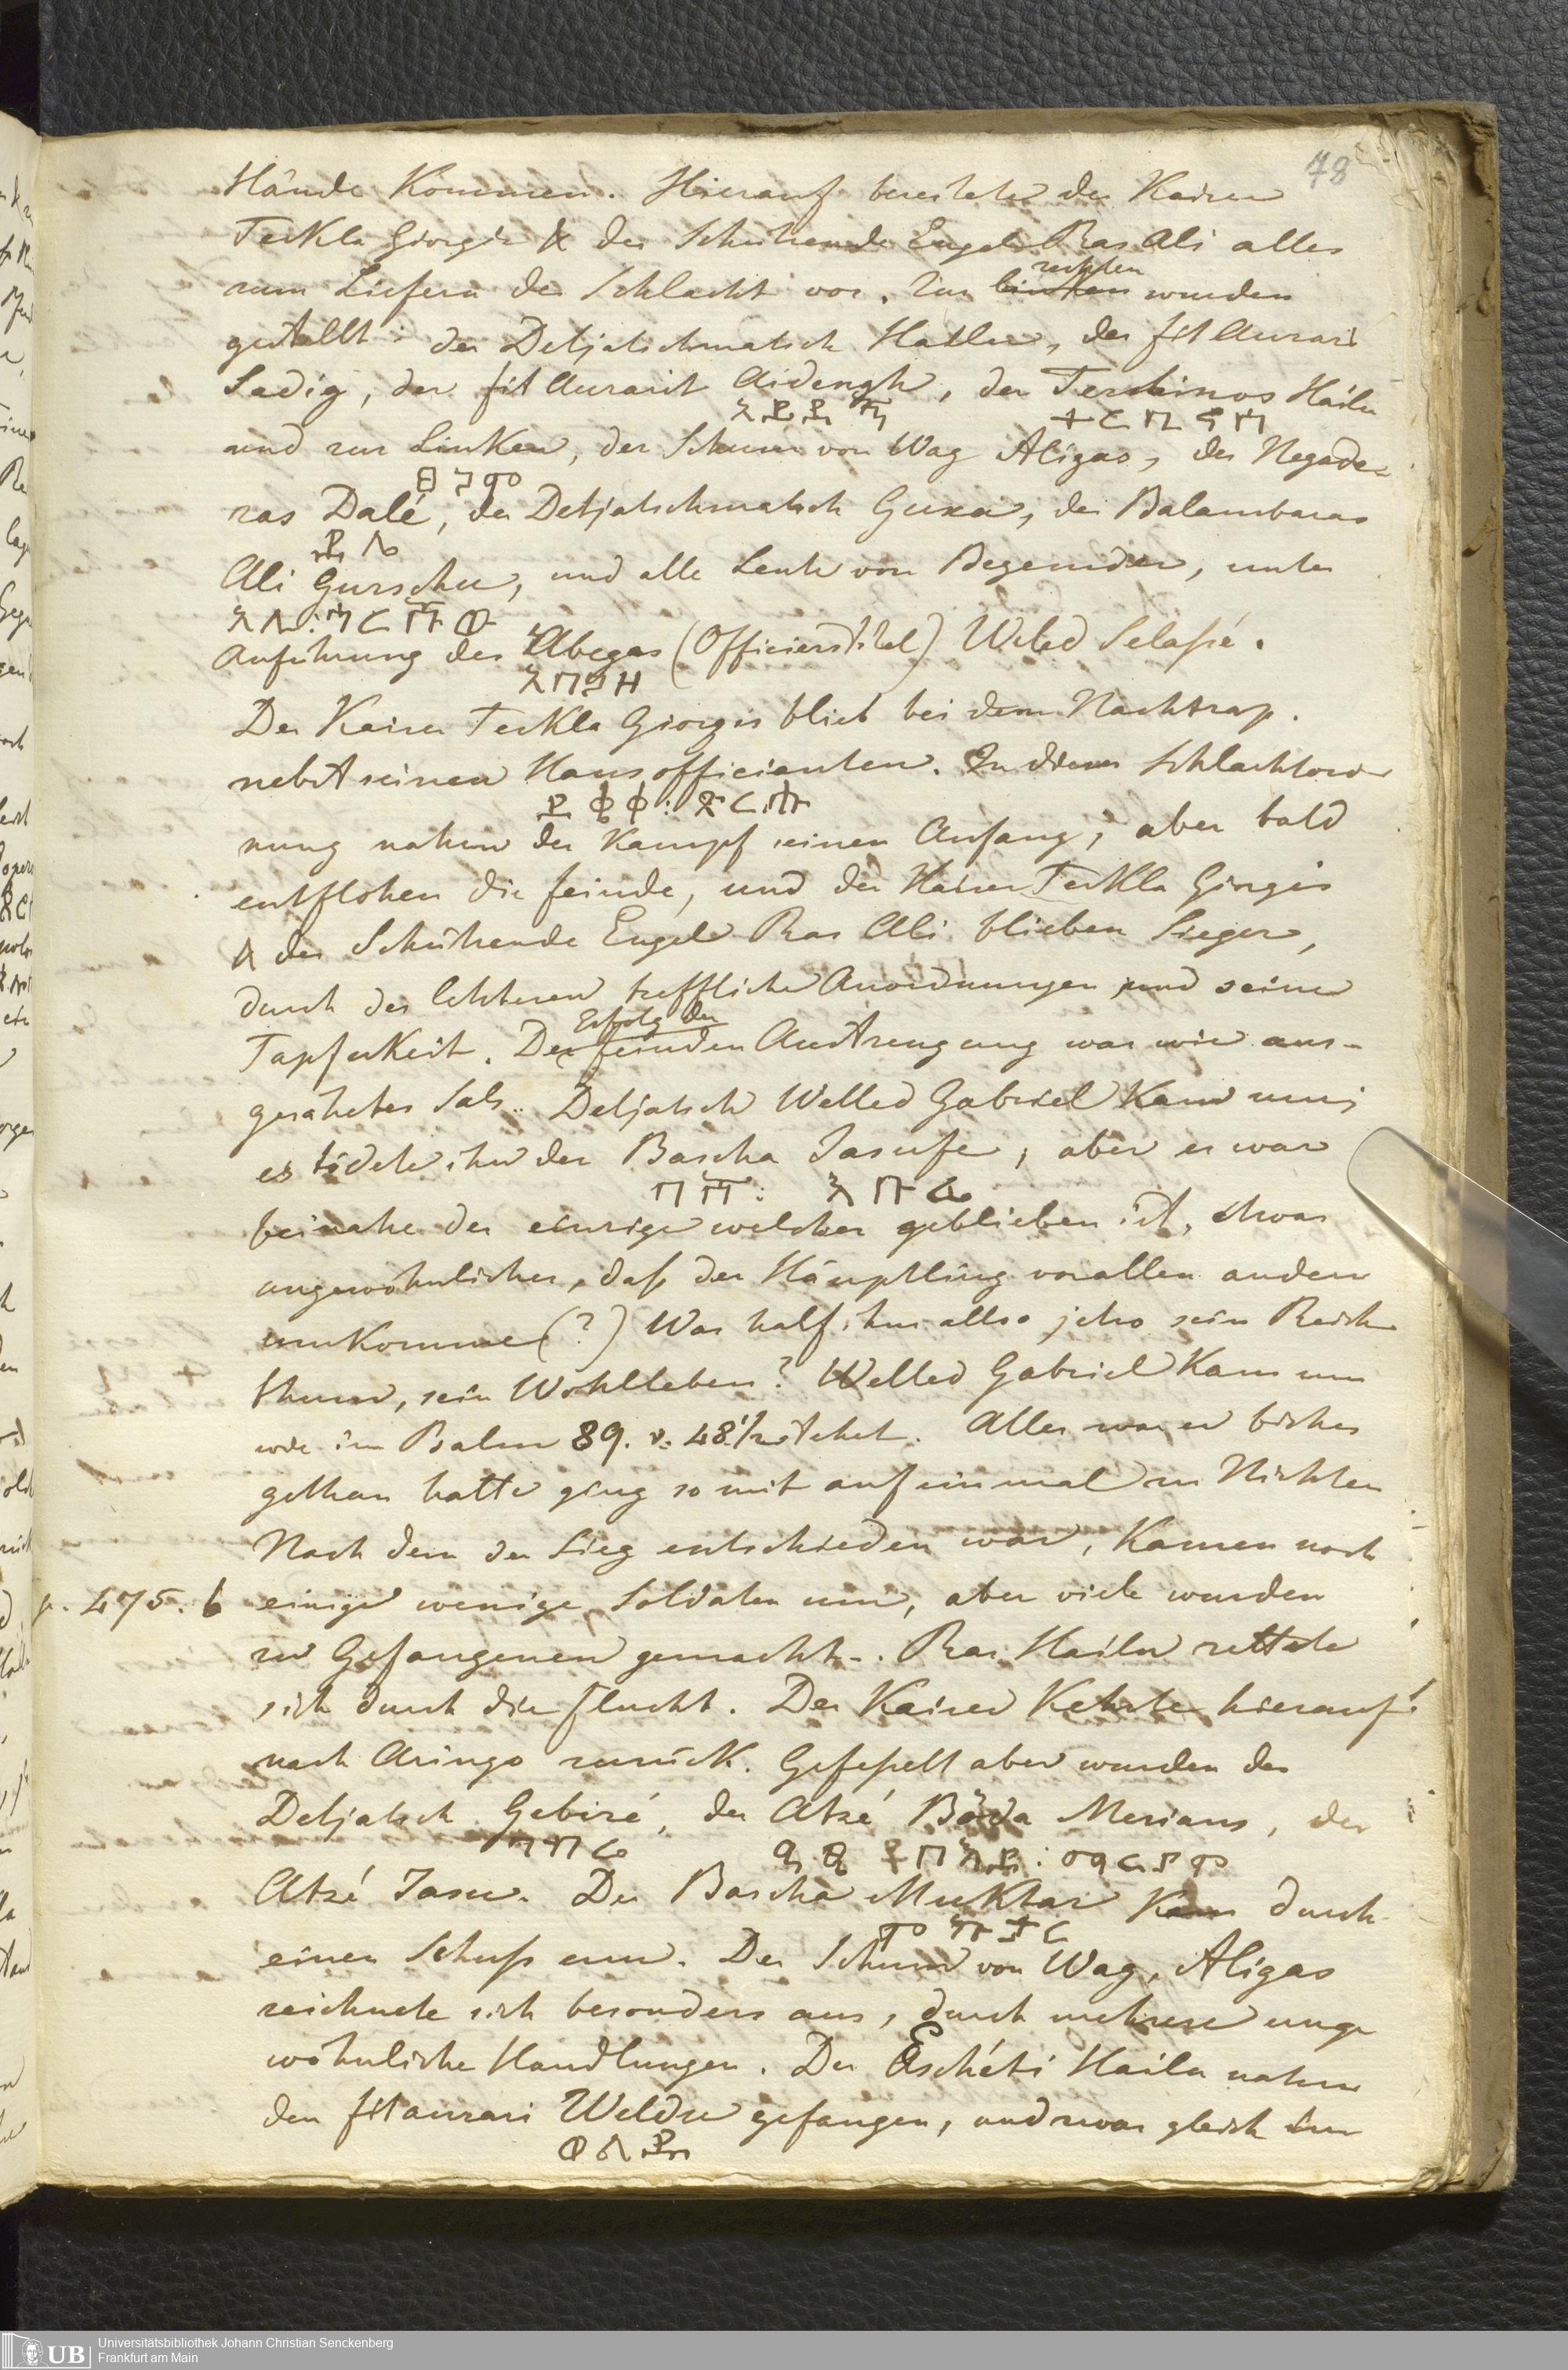 78
Hände kommen. Hierauf bereitete der Kaiser
Teckla Giorgis & der Schützende Engel Ras Ali alles
zum Liefern der Schlacht vor. Zur linken rechten wurden
gestellt: der Detjatschmatsch Hailu, der fit Aurari
Sadig, der fit Aurarit Aidengh, der Terchinos Hailu
und zur Linken, der Schum von Wag Aligas, der Negade-
ras Dalé, der Detjatschmatsch Guxa, der Balambaras
Ali Gurschu, und alle Leute von Begemder, unter
አሊ፡ጉርሹ
Anführung des Abegas (Officierstitel) Weled Selaßé.
አበጋዝ
Der Kaiser Teckla Giorgis blieb bei dem Nachtrap.
nebst seinen Hausofficianten. In dieser Schlachtord-
nung nahm der Kampf seinen Anfang, aber bald
entflohen die feinde, und der Kaiser Teckla Giorgis
& der Schützende Engel Ras Ali blieben Sieger,
durch des letzteren treffliche Anordnungen und seine
Tapferkeit. Der Erfolg der feinden Anstrengung war wie aus-
gesähetes Salz. Detjatsch Welled Gabriel kam um;
es tödete ihn der Bascha Jasufe, aber er war
beinahe der einzige welcher geblieben ist, etwas
ungewöhnliches, daß der Häuptling vor allen andern
umkomme (?) Was half ihm also jetzo sein Reich
thum, sein Wohlleben? Welled Gabriel kam um
wie im Psalm 89. v. 48 1/2 stehet. Alles was er bisher
gethan hatte ging somit auf einmal zu Nichten
Nach dem der Sieg entschieden war, kamen noch
p. 475. b einige wenige Soldaten um, aber viele wurden
zu Gefangenen gemacht. Ras Hailu rettete
sich durch die flucht. Der Kaiser kehrte hierauf
nach Aringo zurück. Gefeßelt aber wurden der
Detjatsch Gebiré, der Atzé Bäda Meriams, der
Atzé Jasu. Der Bascha Muktar kam durch
einen Schuß um. Der Schum von Wag, Aligas
zeichnete sich besonders aus, durch mehrere unge
wöhnliche Handlungen. Der Eschéti Hailu nahm
den fit aurari Weldu gefangen, und zwar gleich im
UB Universitätsbibliothek Johann Christian Senckenberg
Frankfurt am Main